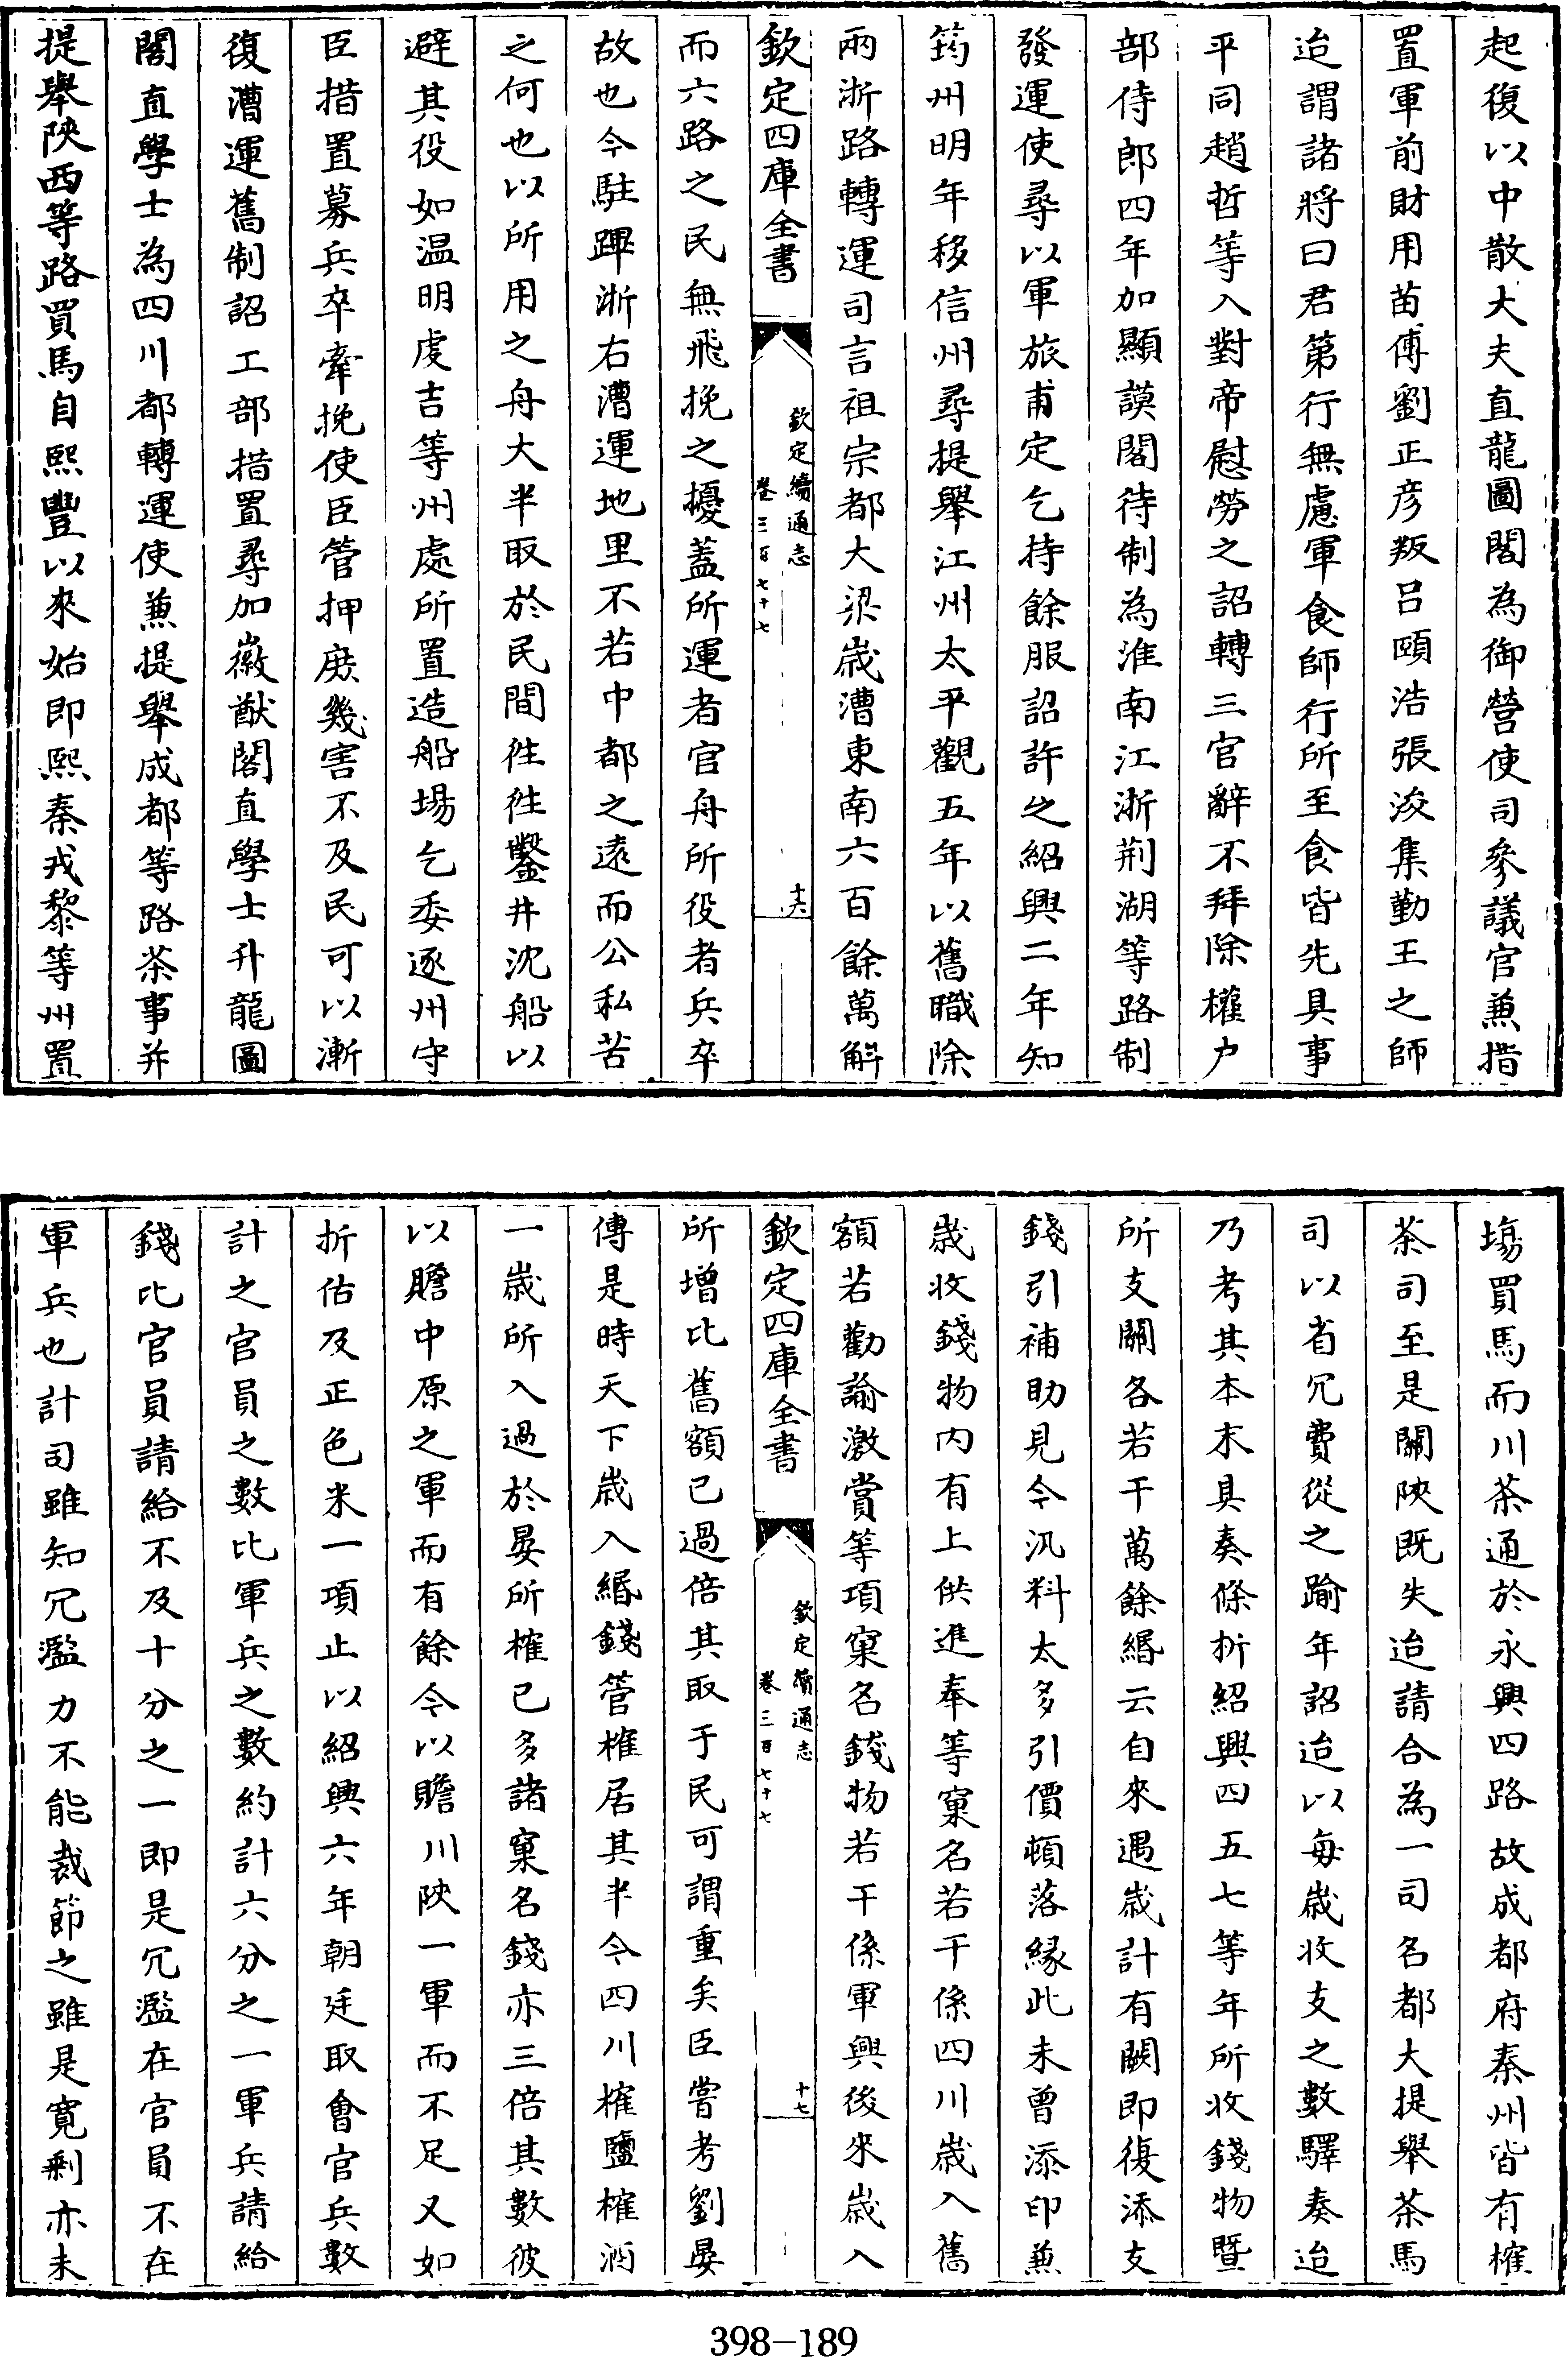 起復以中散大夫直龍圖閣為御營使司參議官兼措
置軍前財用苗傅劉正彦叛吕頤浩張浚集勤王之師
迨謂諸將曰君第行無慮軍食師行所至食皆先具事
平同趙哲等入對帝慰勞之詔轉三官辭不拜除權户
部侍郎四年加顯謨閣待制為淮南江浙荆湖等路制
發運使尋以軍旅甫定乞持餘服詔許之紹興二年知
筠州明年移信州尋提舉江州太平觀五年以舊職除
兩浙路轉運司言祖宗都大梁歳漕東南六百餘萬斛
欽定四庫全書
欽定續通志
卷三百七十七
十六
而六路之民無飛挽之擾蓋所運者官舟所役者兵卒
故也今駐蹕浙右漕運地里不若中都之遠而公私苦
之何也以所用之舟大半取於民間徃徃鑿井沈船以
避其役如温明虔吉等州處所置造船場乞委逐州守
臣措置募兵卒牽挽使臣管押庶幾害不及民可以漸
復漕運舊制詔工部措置尋加徽猷閣直學士升龍圖
閣直學士為四川都轉運使兼提舉成都等路茶事并
提舉陜西等路買馬自熙豐以來始即熙秦戎黎等州置
塲買馬而川茶通於永興四路故成都府秦州皆有榷
茶司至是關陜既失迨請合為一司名都大提舉茶馬
司以省冗費從之踰年詔迨以每歳收支之數驛奏迨
乃考其本末具奏條析紹興四五七等年所收錢物暨
所支關各若干萬餘緡云自來遇歳計有闕即復添支
錢引補助見今汎料太多引價頓落縁此未曾添印兼
歳收錢物内有上供進奉等窠名若干係四川歳入舊
額若勸諭激賞等項窠名錢物若干係軍興後來歳入
欽定四庫全書
欽定續通志
卷三百七十七
十七
所増比舊額已過倍其取于民可謂重矣臣嘗考劉晏
傳是時天下歳入緡錢管榷居其半今四川榷鹽榷酒
一歳所入過於晏所榷已多諸窠名錢亦三倍其數彼
以贍中原之軍而有餘今以贍川陜一軍而不足又如
折估及正色米一項止以紹興六年朝廷取會官兵數
計之官員之數比軍兵之數約計六分之一軍兵請給
錢比官員請給不及十分之一即是冗濫在官員不在
軍兵也計司雖知冗濫力不能裁節之雖是寛剰亦未
398-189